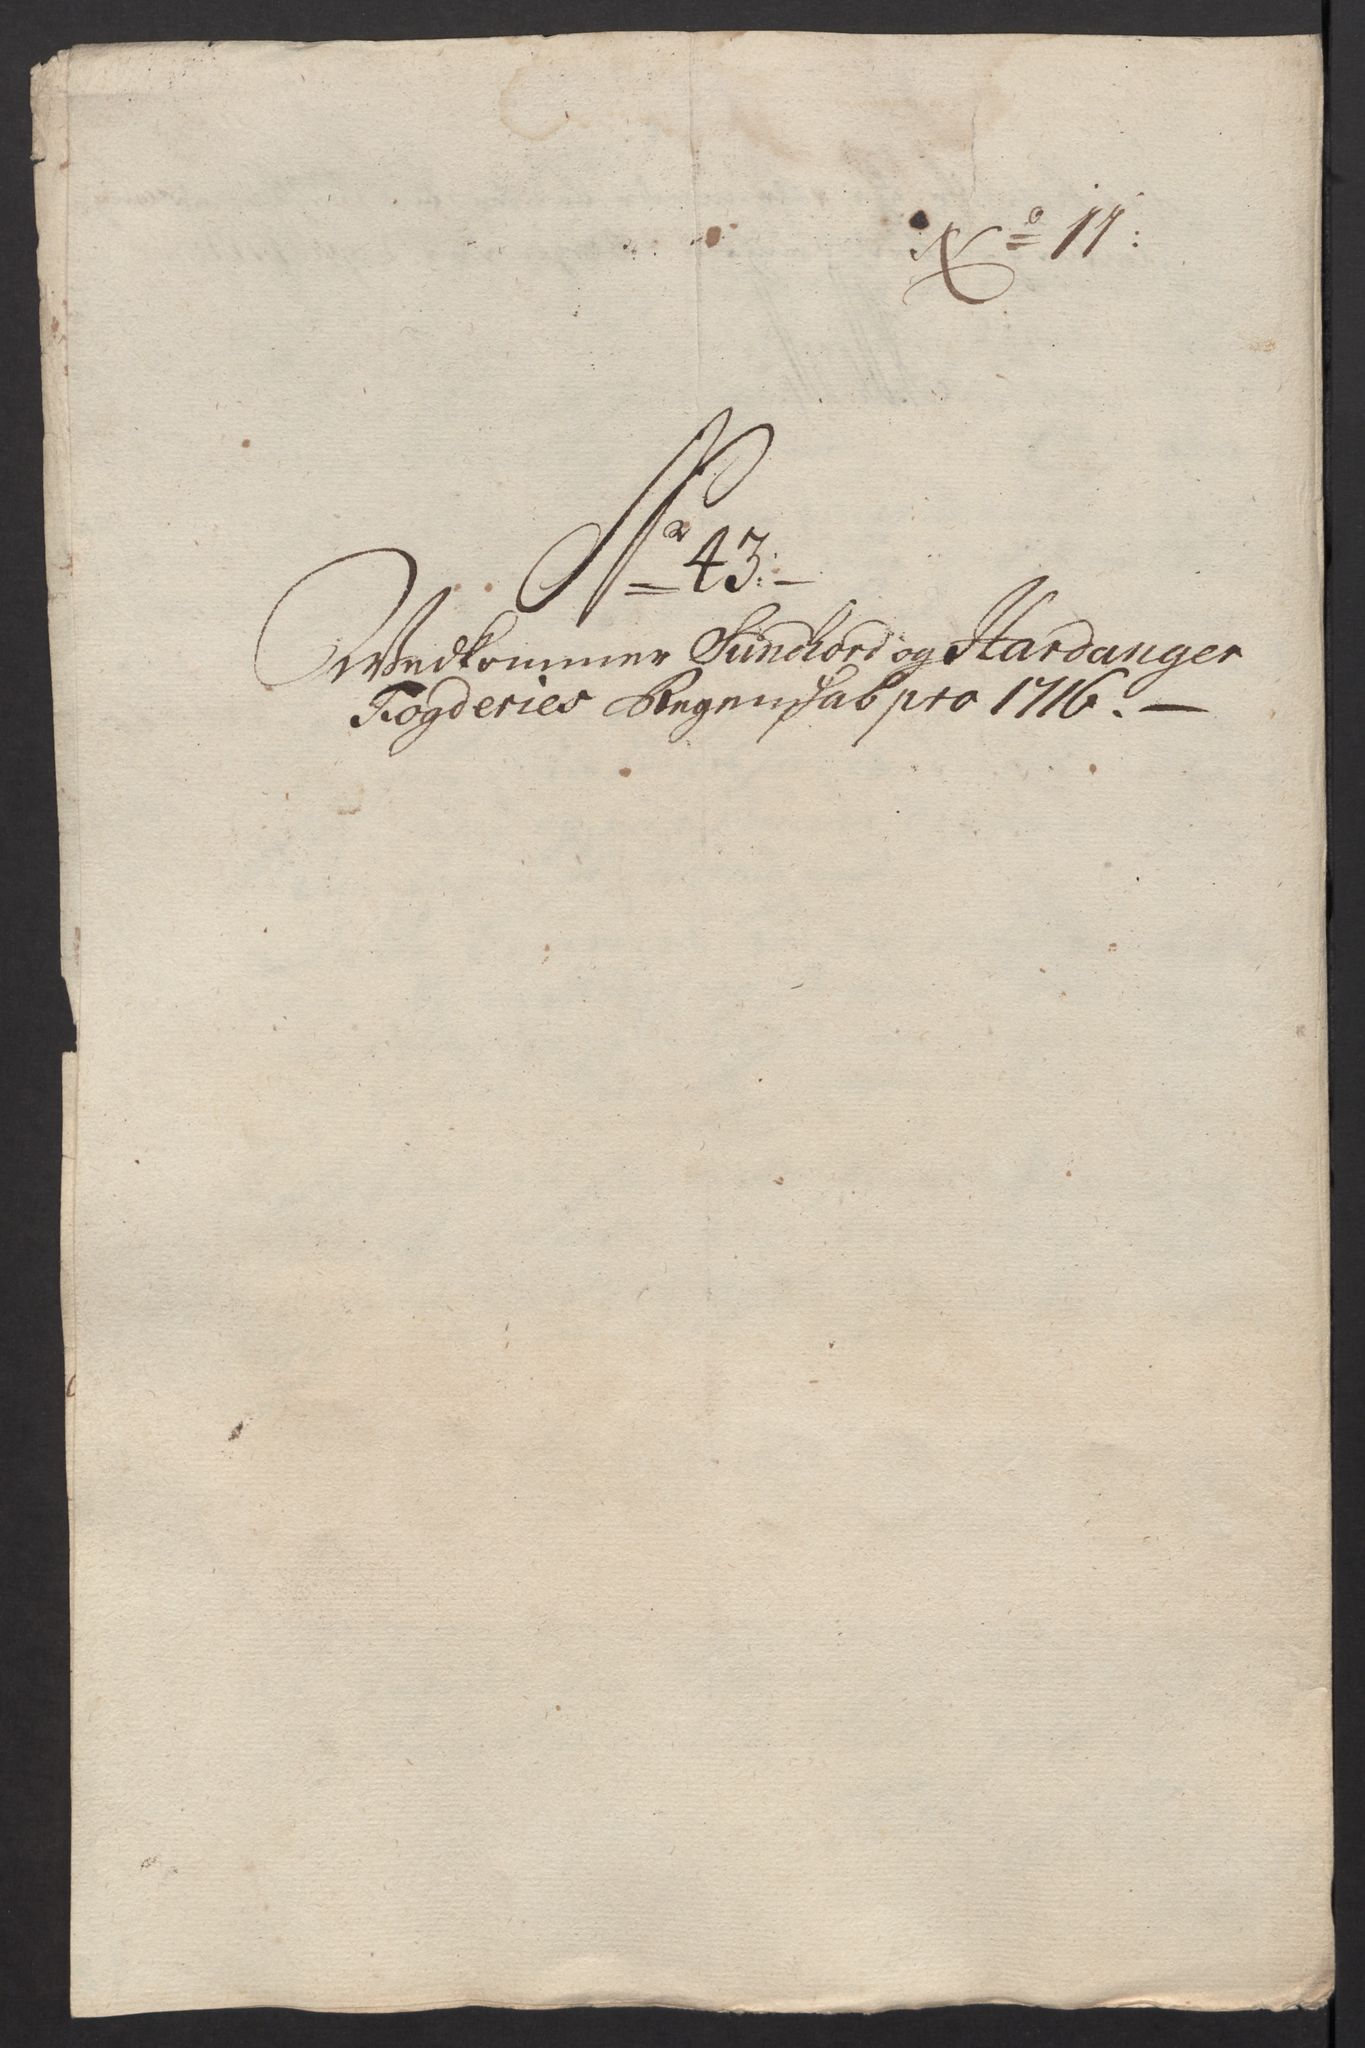 No 11:
Nr 43:—
Wedkommer Sundhord og Hardanger
Fogderies Regenskab pro 1716.—